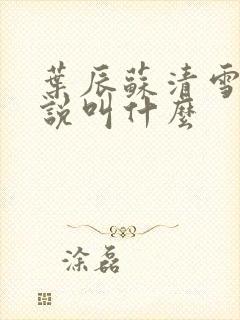 葉辰蘇清雪
說叫什麼
涂磊